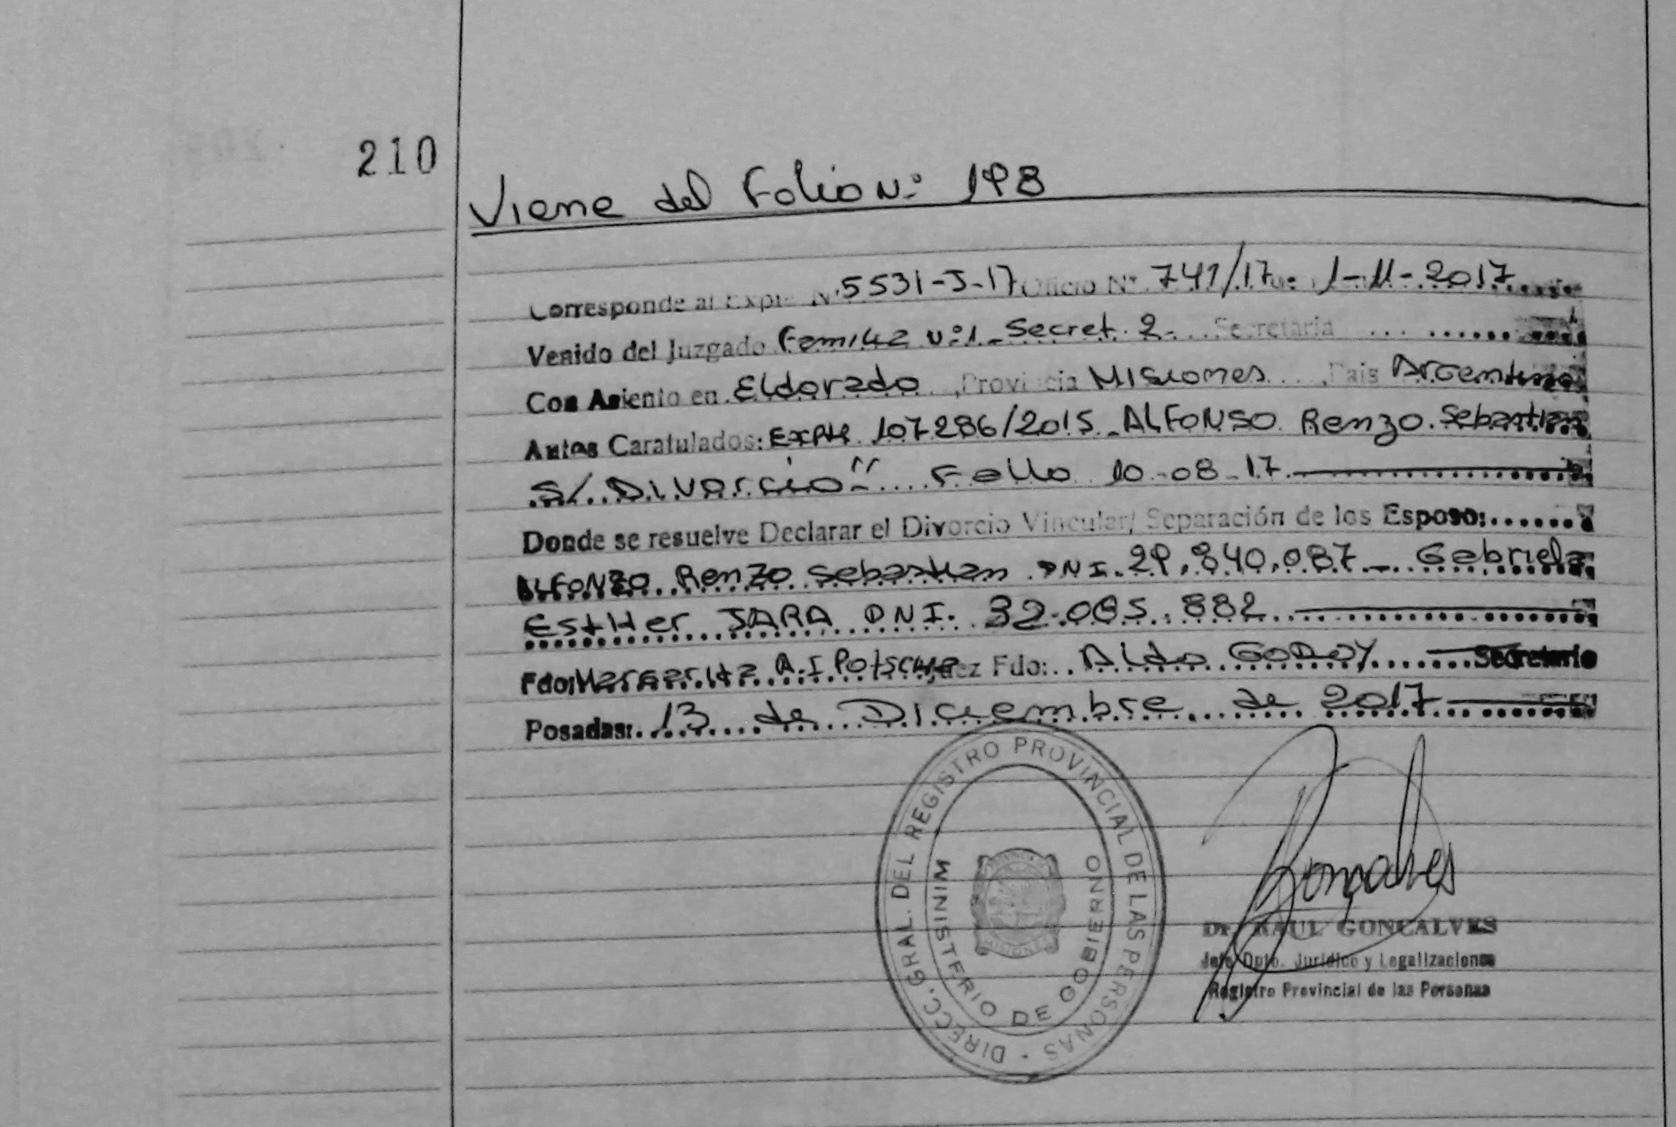 210
Viene del Folio Nº 198
Corresponde al Expte Nº 5531-J-17 Oficio Nº 741/17 de 1-11-2017
Venido del Juzgado Familia Nº 1 - Secret. 2 - Secretaria
Con Asiento en Eldorado, Provincia Misiones, Pais Argentina
Autos Caratulados: Expte 107286/2015 - ALFONSO Renzo Sebastian
S/ Divorcio" Fallo 10-08-17
Donde se resuelve Declarar el Divorcio Vincular/ Separación de los Esposo:
ALFONZO Renzo Sebastian DNI. 29.840.087 - Gabriela
EstHer JARA DNI. 32.085.882
Fdo: Margarita A. I. Juez Fdo: Aldo GODOY Secretario
Posadas: 13 de Diciembre de 2017
DIRECC. GRAL. DEL REGISTRO PROVINCIAL DE LAS PERSONAS -
MINISTERIO DE GOBIERNO
MISIONES
Gonçalves
Dr. RAUL GONCALVES
Jefe Dpto. Jurídico y Legalizaciones
Registro Provincial de las Personas